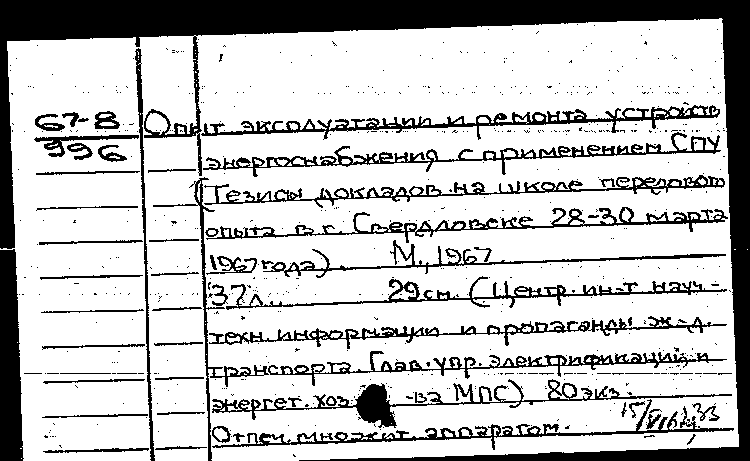 67-8
996
Опыт эксплуатации и ремонта устройств
энергоснабжения с применением СПУ
(Тезисы докладов на школе передового
опыта в г. Свердловске 28-30 марта
1967 года). М., 1967.
37л. 29см. (Центр. ин-т науч.-
техн. информации и пропаганды ж.-д.
транспорта. Глав. упр. электрификации и
энергет. хоз -ва МПС). 80 экз.
Отпеч. множит. аппаратом.